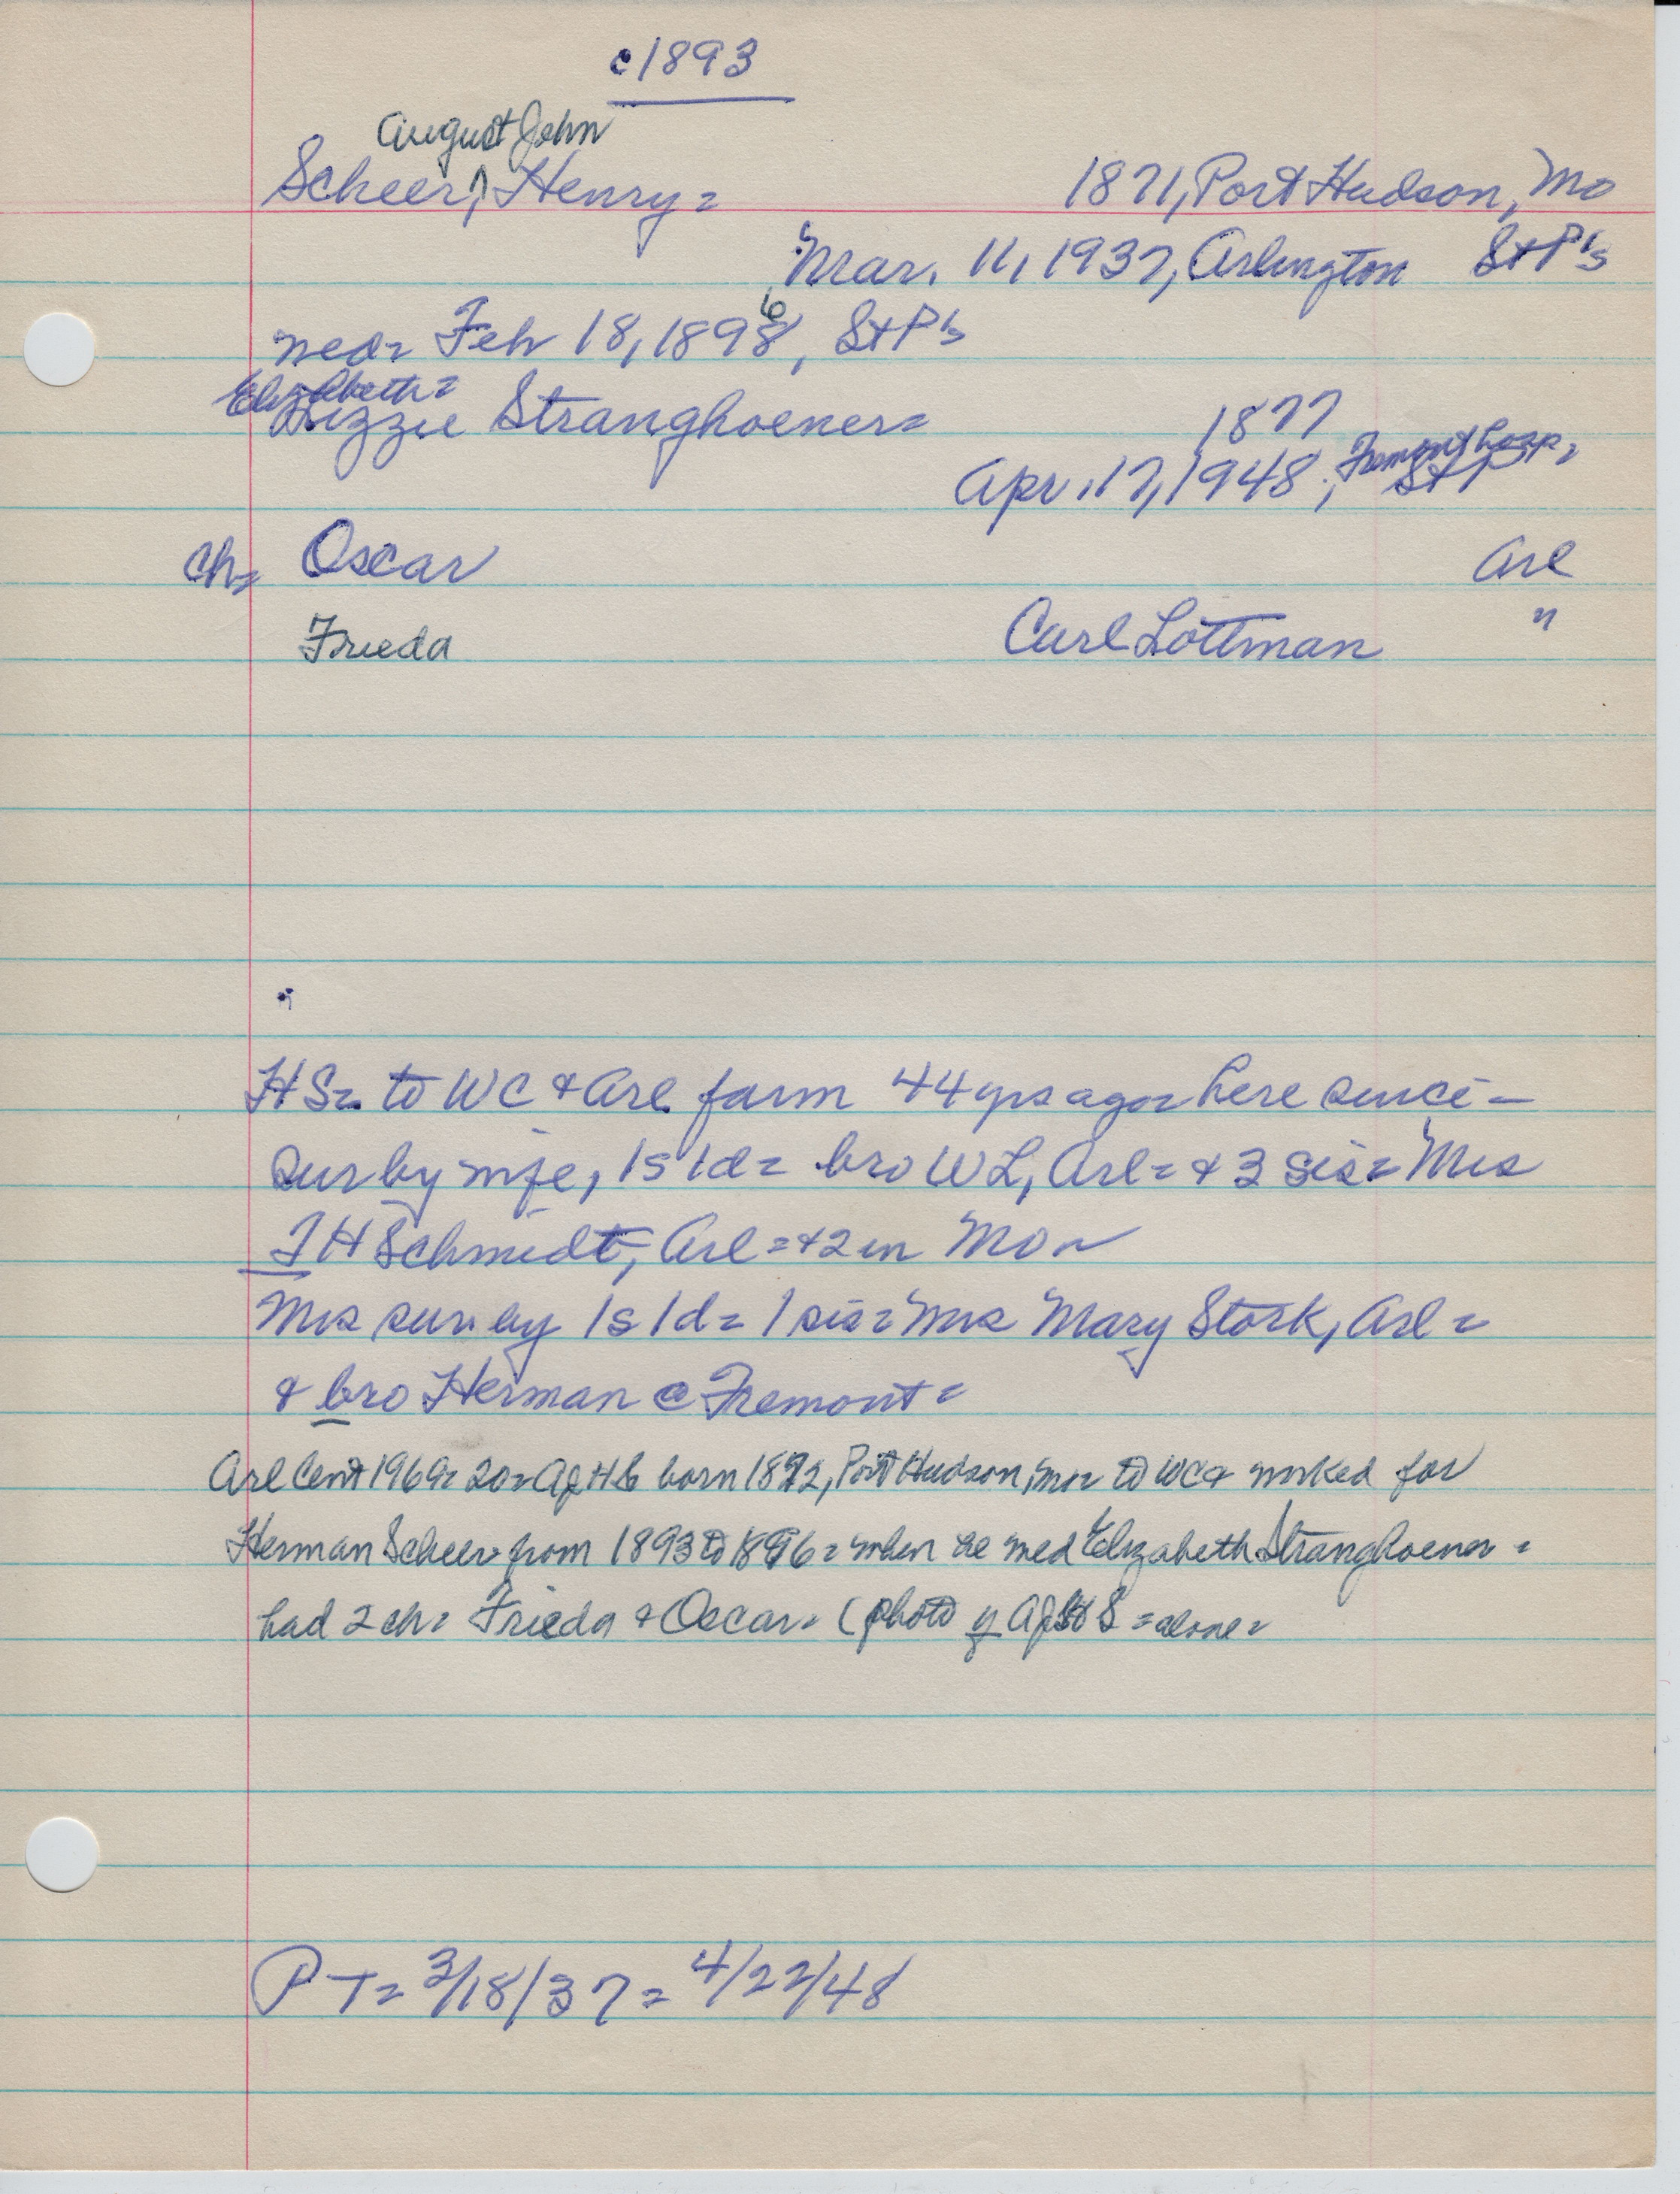 c1893
August John
Scheer, Henry= 1871, Port Hudson, Mo
Mar. 11, 1937, Arlington St P's
med= Feb 18, 1898, St P's
6
Elizabeth=
Lizzie Stranghoener= 1877
Apr. 17, 1948, Fremont hosp=
St P
Ch= Oscar Arl
Frieda Carl Lottman "
HS= to WC & Arl farm 44 yrs ago= here since -
Sur by wife, 1s 1d= bro WL, Arl= & 3 sis= Mrs
F H Schmidt, Arl= & 2 in Mo
Mrs sur by 1s 1d= 1 sis= Mrs Mary Stork, Arl=
& bro Herman @ Fremont=
Arl Cent 1969= 20= AJHS born 1872, Port Hudson, Mo= to WC & worked for
Herman Scheer from 1893 to 1896= when he med Elizabeth Stranghoener=
had 2 ch= Frieda & Oscar= (photo of AJHS= alone=
PT= 3/18/37= 4/22/48